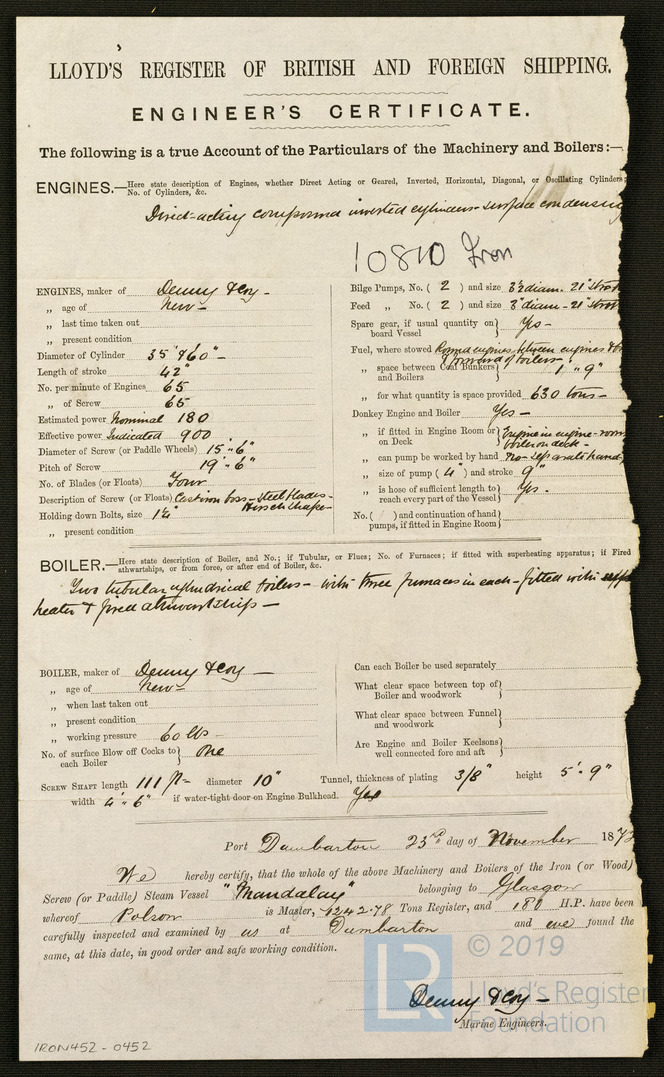 LLOYD'S REGISTER OF BRITISH AND FOREIGN SHIPPING.
ENGINEER'S CERTIFICATE.
The following is a true Account of the Particulars of the Machinery and Boilers:—
ENGINES.—Here state description of Engines, whether Direct Acting or Geared, Inverted, Horizontal, Diagonal, or Oscillating Cylinders;
No. of Cylinders, &c.
Direct-acting compound inverted cylinders surface condensing
10810 Iron
ENGINES, maker of Denny & Coy —
„ age of New —
„ last time taken out
„ present condition
Diameter of Cylinder 35" & 60" —
Length of stroke 42"
No. per minute of Engines 65
„ of Screw 65
Estimated power Nominal 180
Effective power Indicated 900
Diameter of Screw (or Paddle Wheels) 15 „ 6"
Pitch of Screw 19 „ 6"
No. of Blades (or Floats) Four
Description of Screw (or Floats) Cast iron boss – Steel blades –
Hirsch shape
Holding down Bolts, size 1¼"
„ present condition
Bilge Pumps, No. ( 2 ) and size 3½ diam. 21" Strok
Feed „ No. ( 2 ) and size 3" diam – 21" Strok
Spare gear, if usual quantity on board Vessel } Yes —
Fuel, where stowed Round engines, between engines &
& forward of boilers
„ space between Coal Bunkers and Boilers } 1 „ 9"
„ for what quantity is space provided 630 tons —
Donkey Engine and Boiler Yes —
„ if fitted in Engine Room or on Deck } Engine in engine-room
boiler on deck —
„ can pump be worked by hand no – separate hand
„ size of pump ( 4" ) and stroke 9"
„ is hose of sufficient length to reach every part of the Vessel } Yes.
No. ( ) and continuation of hand pumps, if fitted in Engine Room }
BOILER.—Here state description of Boiler, and No.; if Tubular, or Flues; No. of Furnaces; if fitted with superheating apparatus; if Fired
athwartships, or from force, or after end of Boiler, &c.
Two tubular cylindrical boilers – with three furnaces in each – fitted with
heater & fired athwartships —
BOILER, maker of Denny & Coy —
„ age of New —
„ when last taken out
„ present condition
„ working pressure 60 lbs —
No. of surface Blow off Cocks to each Boiler } One
Can each Boiler be used separately
What clear space between top of Boiler and woodwork }
What clear space between Funnel and woodwork }
Are Engine and Boiler Keelsons well connected fore and aft }
SCREW SHAFT length 111 ft – diameter 10" Tunnel, thickness of plating 3/8" height 5' „ 9"
width 4' „ 6" if water-tight door on Engine Bulkhead. Yes
Port Dumbarton 23rd day of November 187
We hereby certify, that the whole of the above Machinery and Boilers of the Iron (or Wood)
Screw (or Paddle) Steam Vessel "Mandalay" belonging to Glasgow
whereof Polson is Master, 1242.78 Tons Register, and 180 H.P. have been
carefully inspected and examined by us at Dumbarton and we found the
same, at this date, in good order and safe working condition.
Denny & Coy —
Marine Engineers.
IRON452 - 0452
LR
© 2019
Lloyd's Register
Foundation